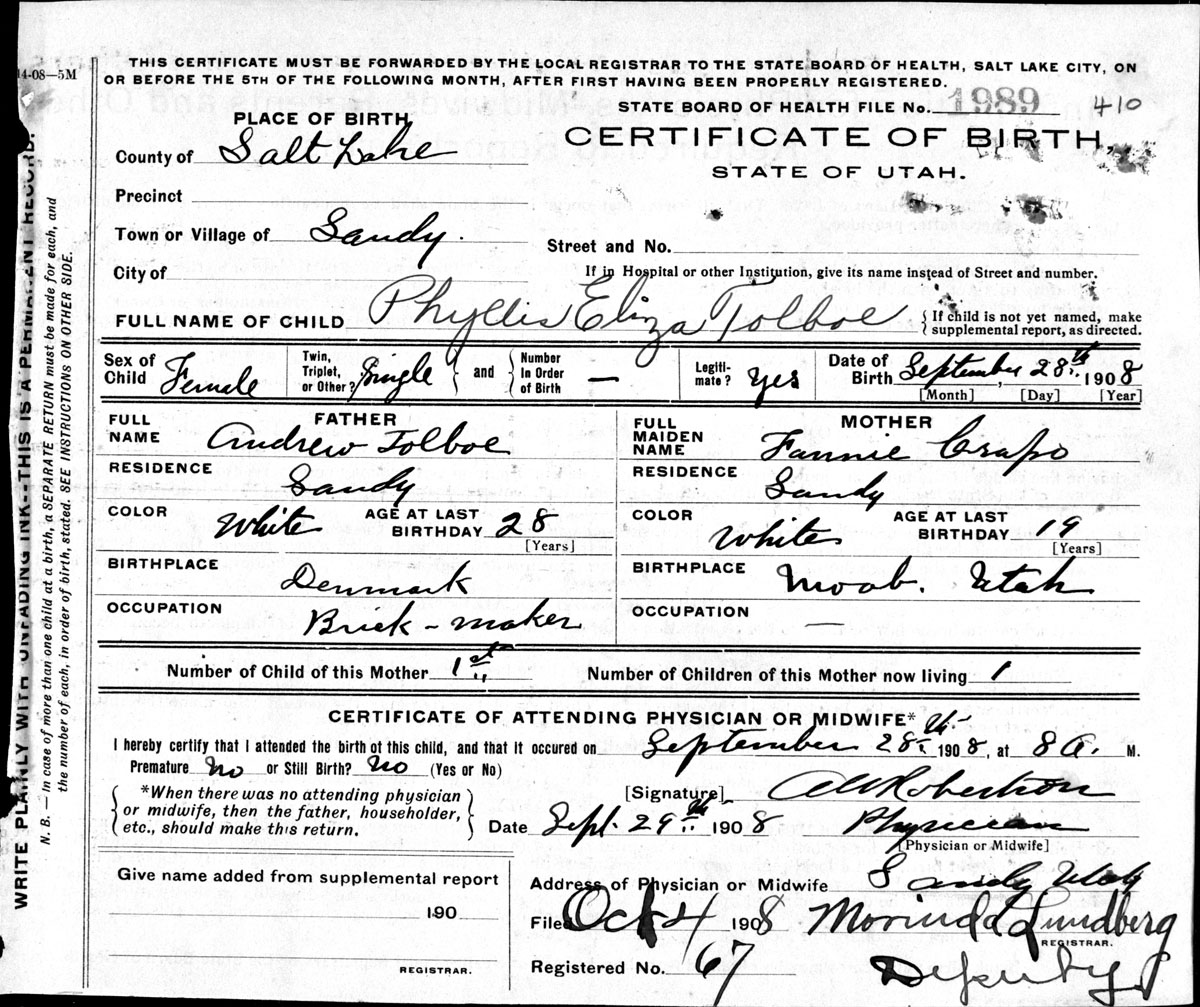 14-08—5M
THIS CERTIFICATE MUST BE FORWARDED BY THE LOCAL REGISTRAR TO THE STATE BOARD OF HEALTH, SALT LAKE CITY, ON
OR BEFORE THE 5TH OF THE FOLLOWING MONTH, AFTER FIRST HAVING BEEN PROPERLY REGISTERED.
STATE BOARD OF HEALTH FILE No. 1989 410
PLACE OF BIRTH
CERTIFICATE OF BIRTH
County of Salt Lake
STATE OF UTAH.
Precinct
Town or Village of Sandy.
Street and No.
City of
If in Hospital or other Institution, give its name instead of Street and number.
FULL NAME OF CHILD Phyllis Eliza Tolboe
{ If child is not yet named, make
supplemental report, as directed.
Sex of Child Female Twin, Triplet, or Other? Single } and { Number In Order of Birth — Legiti-mate? Yes Date of Birth September 28th 1908
[Month] [Day] [Year]
FATHER MOTHER
FULL NAME Andrew Tolboe FULL MAIDEN NAME Fannie Crapo
RESIDENCE Sandy RESIDENCE Sandy
COLOR White AGE AT LAST BIRTHDAY 28 [Years] COLOR White AGE AT LAST BIRTHDAY 19 [Years]
BIRTHPLACE Denmark BIRTHPLACE Moab. Utah
OCCUPATION Brick-maker OCCUPATION —
Number of Child of this Mother 1st Number of Children of this Mother now living 1
CERTIFICATE OF ATTENDING PHYSICIAN OR MIDWIFE*
I hereby certify that I attended the birth of this child, and that it occured on September 28th 1908, at 8 A. M.
Premature No or Still Birth? No (Yes or No)
*When there was no attending physician
or midwife, then the father, householder,
etc., should make this return.
[Signature] Robertson
Date Sept. 29th 1908 Physician
[Physician or Midwife]
Give name added from supplemental report
190
REGISTRAR.
Address of Physician or Midwife Sandy Utah
Filed Oct 4 1908 Morinda Lundberg
REGISTRAR.
Registered No. 67 Deputy
WRITE PLAINLY WITH UNFADING INK—THIS IS A PERMANENT RECORD.
N. B.—In case of more than one child at a birth, a SEPARATE RETURN must be made for each, and
the number of each, in order of birth, stated. SEE INSTRUCTIONS ON OTHER SIDE.